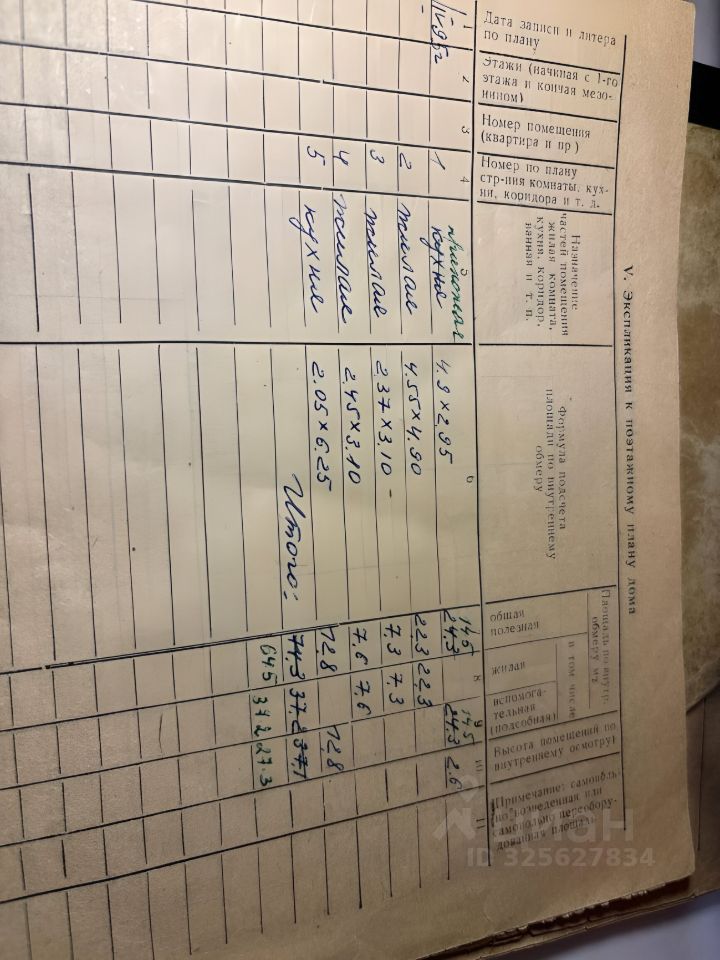 V. Экспликация к поэтажному плану дома
Дата записи и литера по плану
Этажи (начиная с 1-го этажа и кончая мезонином)
Номер помещения (квартира и пр)
Номер по плану стр-ния комнаты, кухни, коридора и т. д.
Назначение частей помещения жилая комната, кухня, коридор, ванная и т. п.
Формула подсчета площади по внутреннему обмеру
Площадь по внутр. обмеру м2
общая полезная
в том числе
жилая
вспомогательная (подсобная)
Высота помещений по внутреннему осмотру)
Примечание: самовольно возведенная или самовольно переоборудованная площадь
2 3 4 6 8 9 11
95г
прихожая
14.5 14.5
1 кухня 4.9 × 2.95 24.3 24.3 2.6
2 жилая 4.55 × 4.90 22.3 22.3
3 жилая 2.37 × 3.10 7,3 7.3
4 жилая 2.45 × 3.10 7,6 7.6
5 кухня 2.05 × 6.25 12.8 12.8
Итого: 74.3 37.2 37,1
64.5 37.2 27.3
циан
ID 325627834